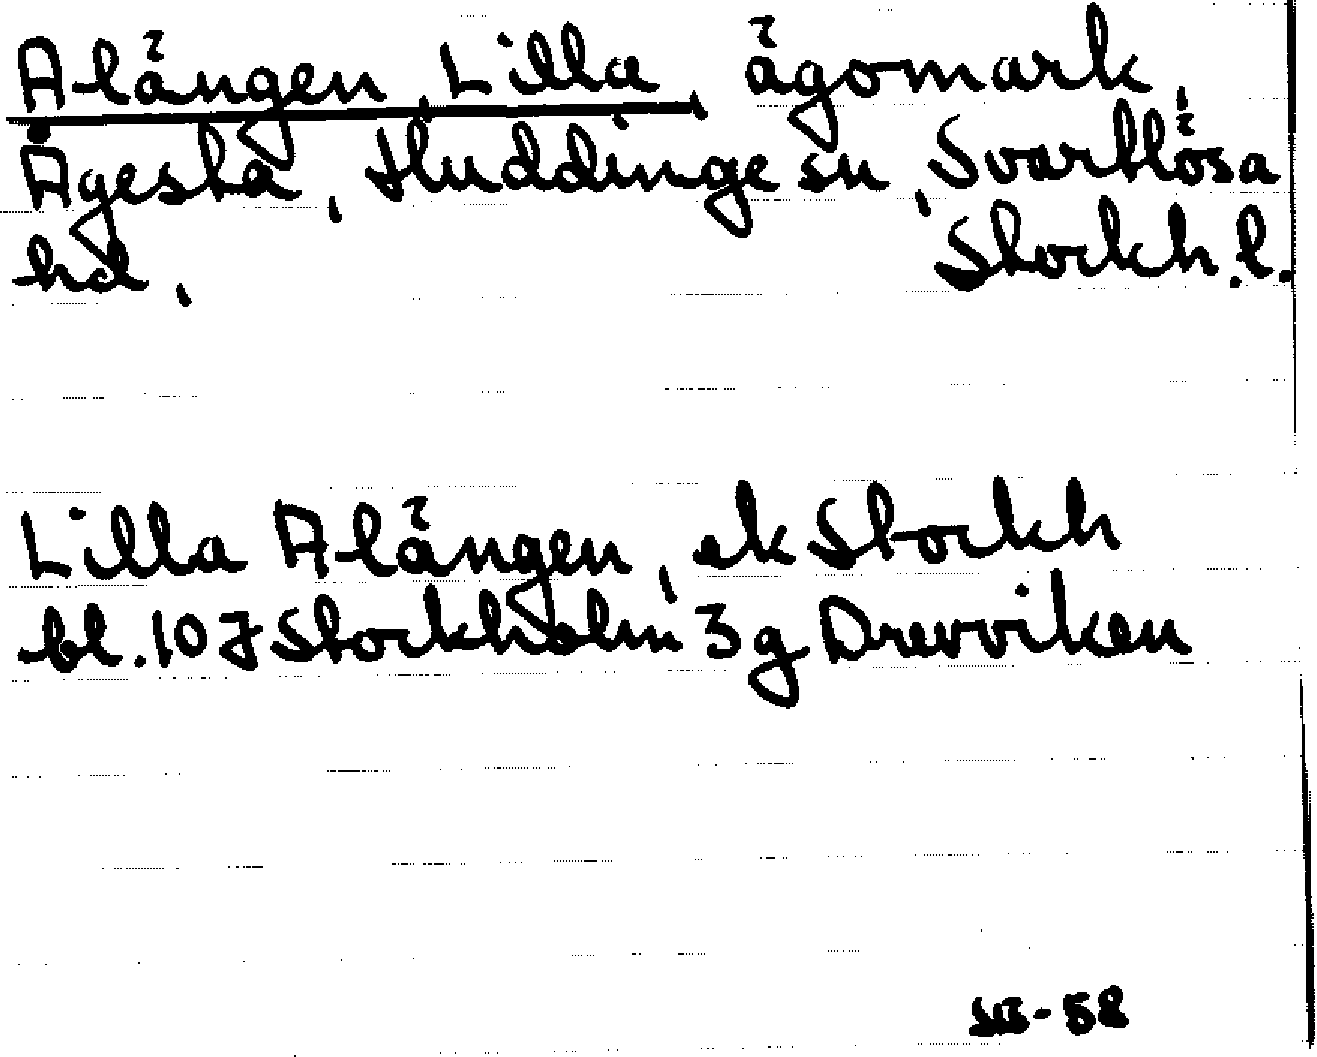 Alängen, Lilla, ägomark,
Ågesta, Huddinge sn, Svartlösa
hd, Stockh.l.
Lilla Alängen, ek Stockh
bl. 10 J Stockholm 3 g Drevviken
-58